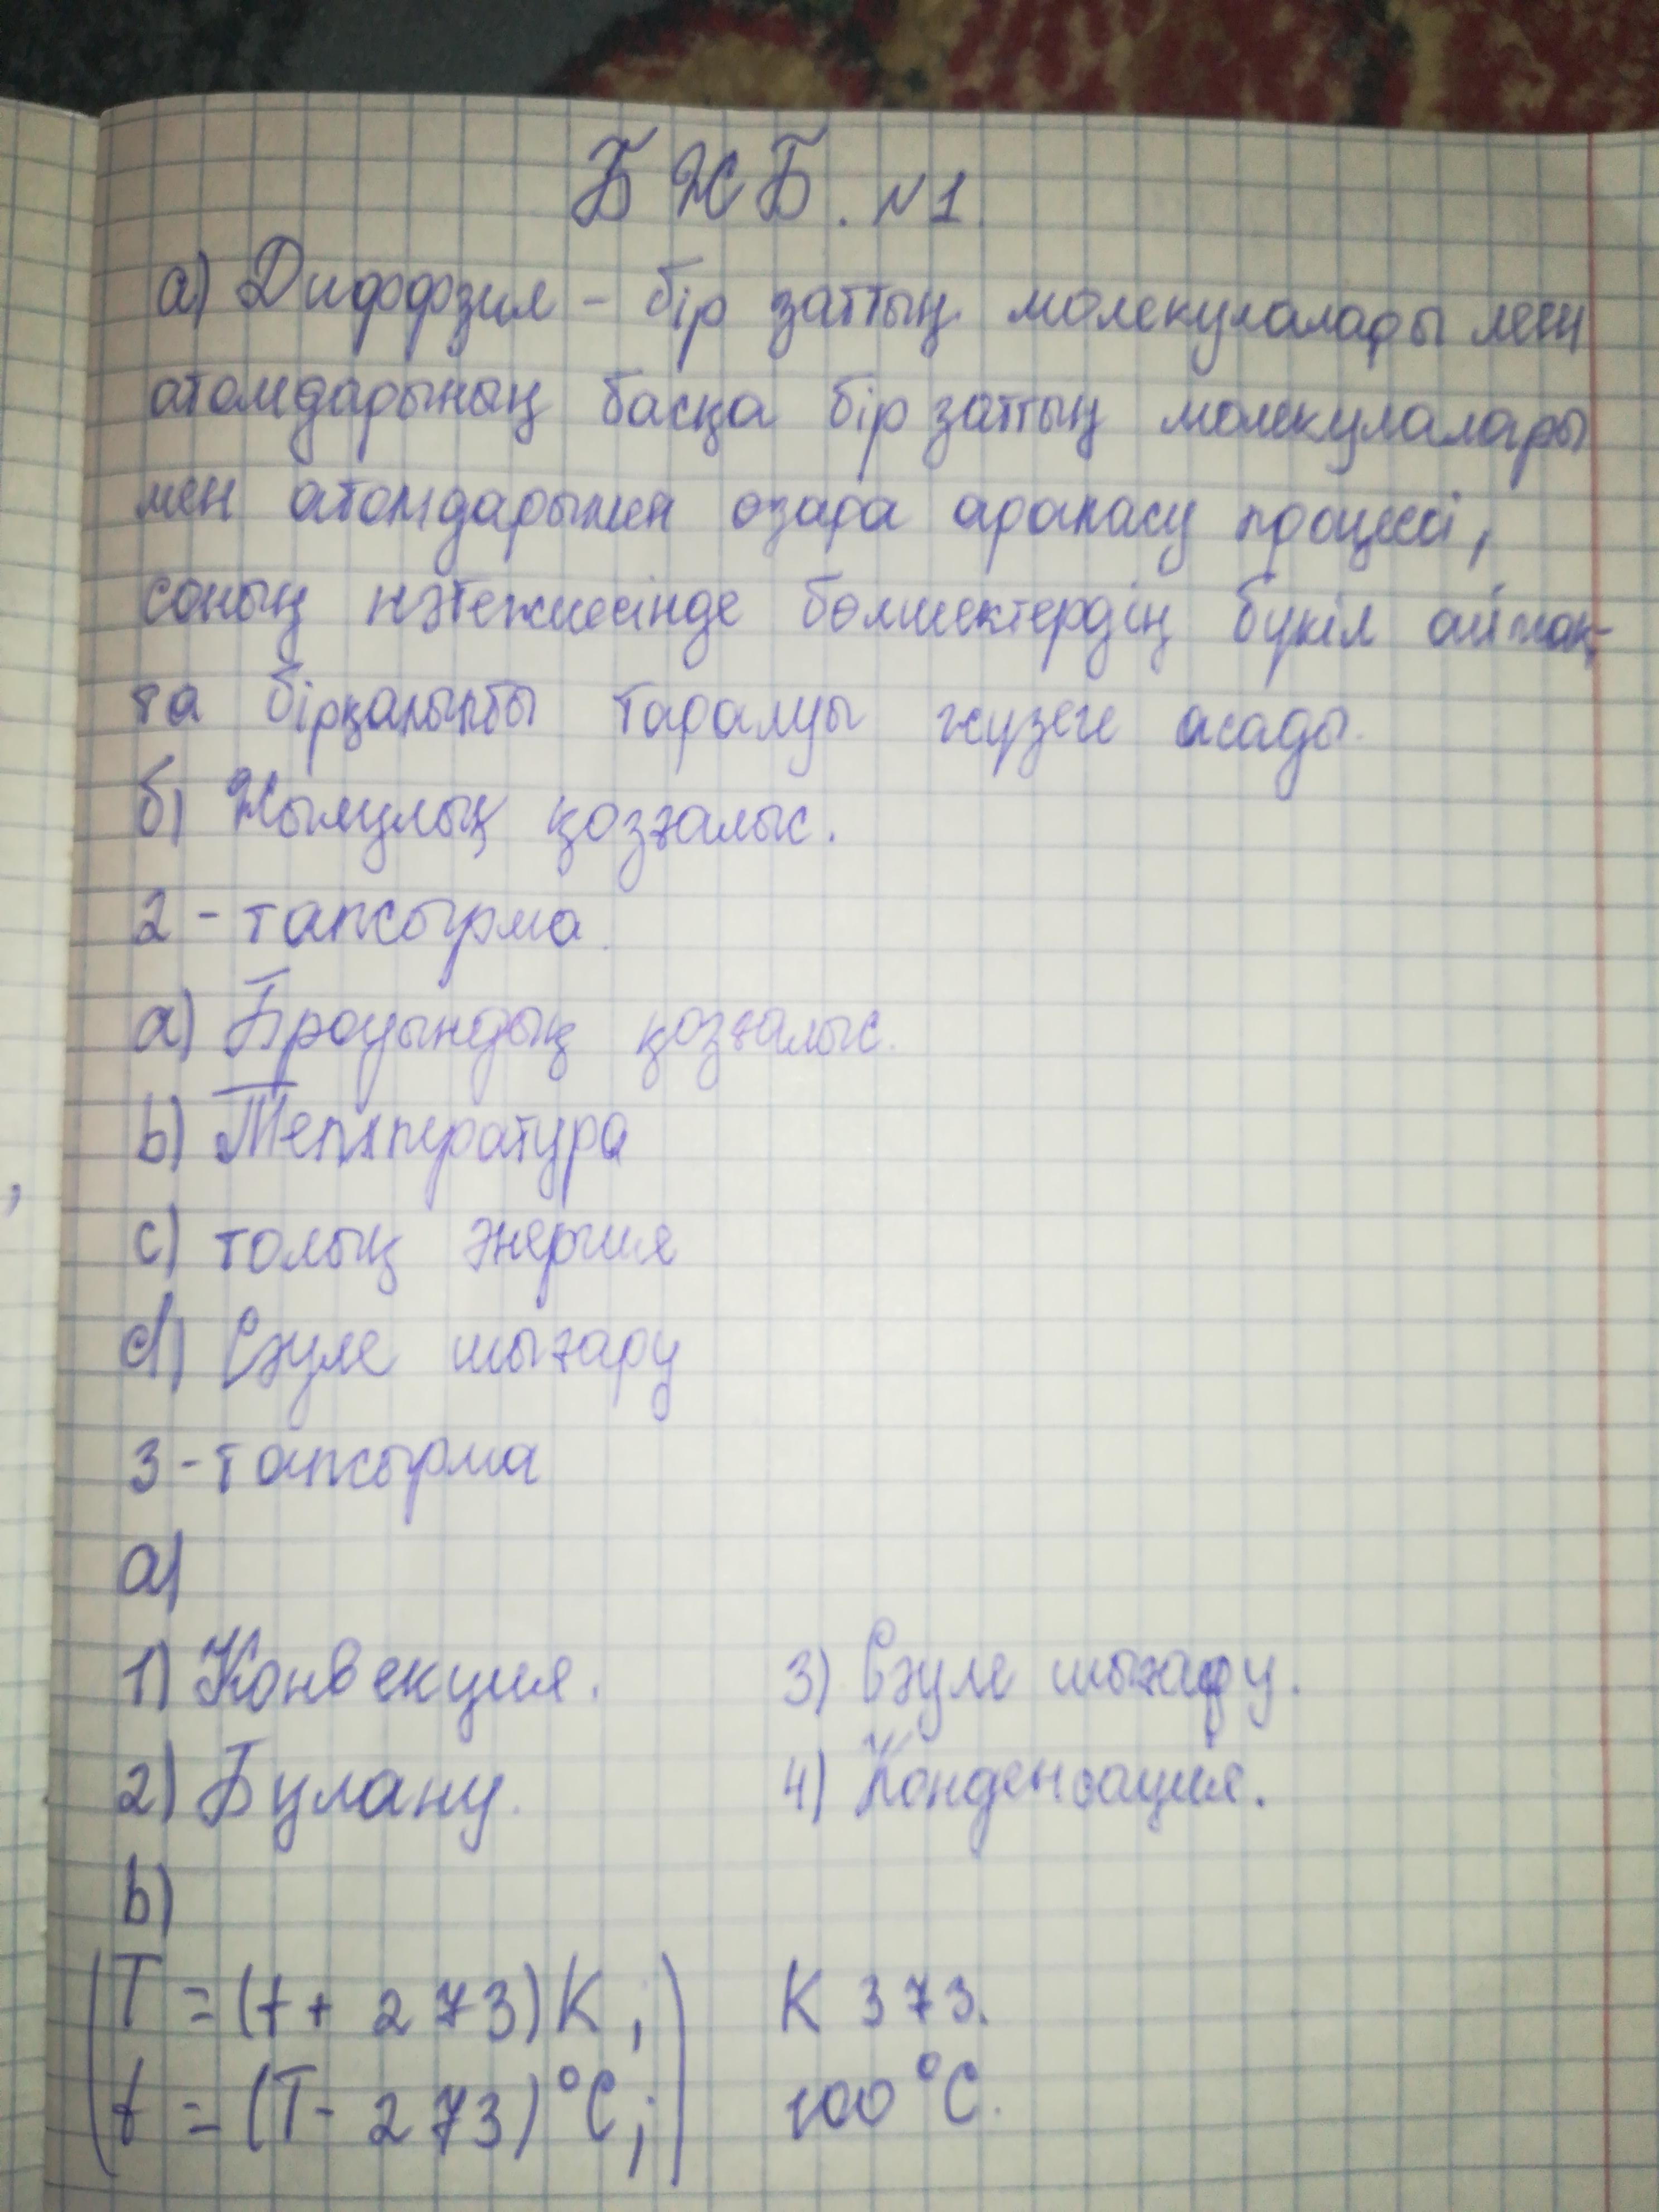 БЖБ. №1.
а) Диффузия - бір заттың молекулалары мен
атомдарының басқа бір заттың молекулалары
мен атомдарымен өзара араласу процесі,
соның нәтежиесінде бөлшектердің бүкіл аймақ-
та бірқалыпты таралуы жүзеге асады.
б) Жылулық қозғалыс.
2-тапсырма
а) Броундық қозғалыс.
b) Температура
c) толық энергия
d) Сәуле шығару
3-тапсырма
а)
1) Конвекция. 3) Сәуле шығару.
2) Булану. 4) Конденсация.
b)
(T = (t + 273)K;) K 373.
(t = (T - 273)°C;) 100°C.